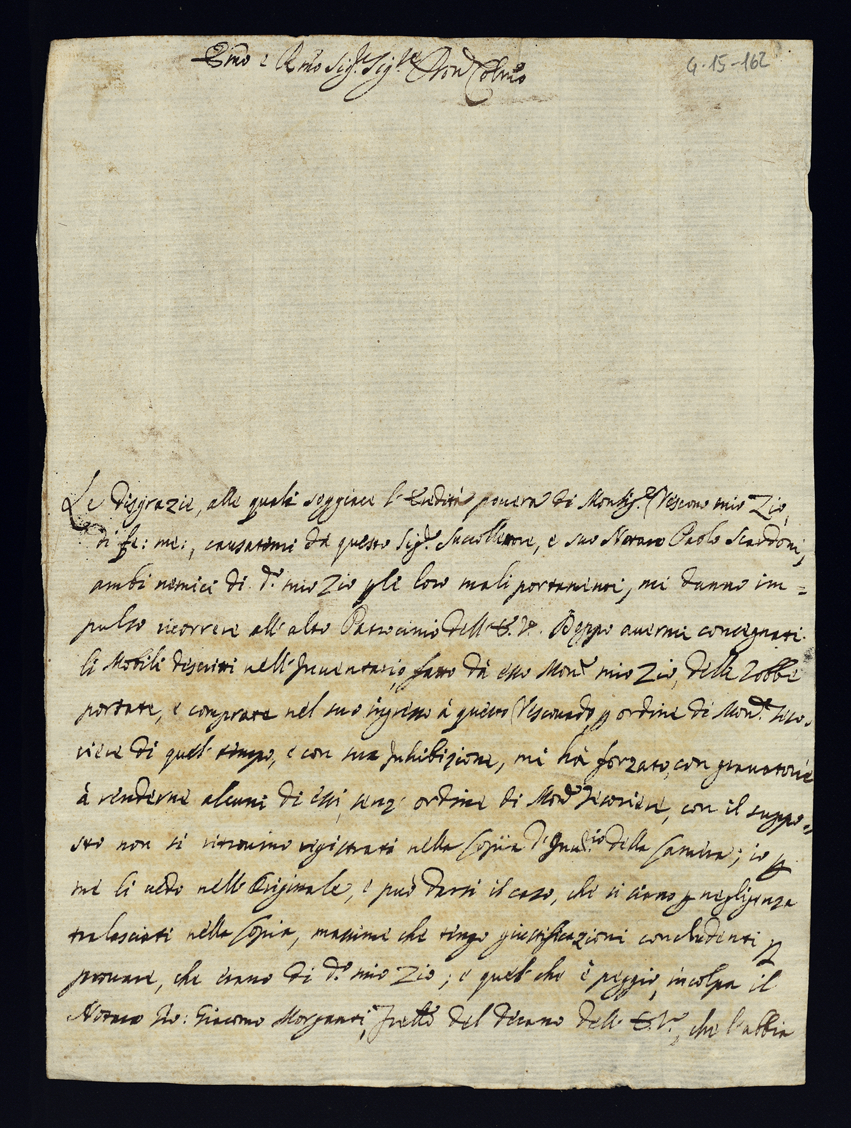 Emo e Rmo Sig.r Sig.r Pron Colmo
G-15-162
Le disgrazie, alle quali soggiace l'Eredità povera di Monsig.r Vescovo mio Zio,
di fe: me:, causatemi da questo Sig.r Succollettore, e suo Notaro Paolo Scardoni,
ambi nemici di d.o mio Zio p le loro mali portamenti, mi danno im=
pulso ricorrere all'alto Patrocinio dell'E.V. Doppo avermi consegnati
li Mobili descritti nell'Inventario, fatto da esso Mon.r mio Zio, delle Robbe
portate, e comprate nel suo ingresso à questo Vescovado p ordine di Mon.r Teso
riere di quel tempo, e con sua Inhibizione, mi hà forzato, con gravatorie
à renderne alcuni di essi, senz'ordine di Mon.r Tesoriere, con il suppo=
sto non si ritrovino registrati nella Copia d'Inv.rio della Camera; io p
me li vedo nell'Originale, e può darsi il caso, che si siano p negligenza
tralasciati nella Copia, massime che tengo giustificazioni concludenti p
provare, che erano di d.o mio Zio; e quel che è peggio, incolpa il
Notaro Gio: Giacomo Morganti, Fretto del Decano dell'E.V., che l'abbia